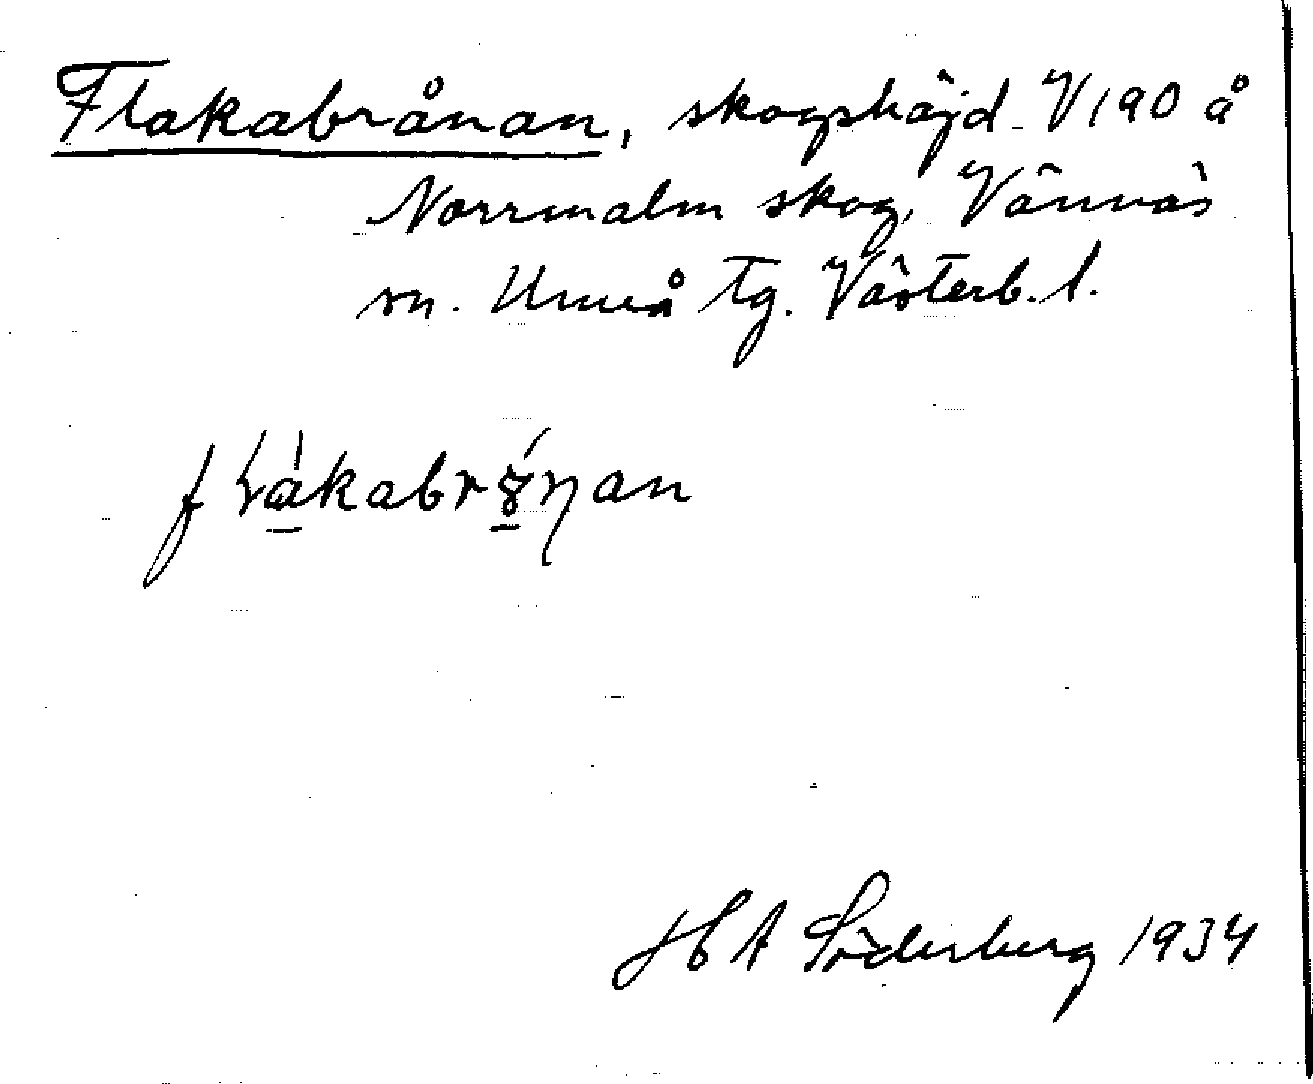 Flakabrånan, skogshöjd V190 å
Norrmalm skog, Vännäs
sn. Umeå tg. Västerb. l.
HA Söderberg 1934